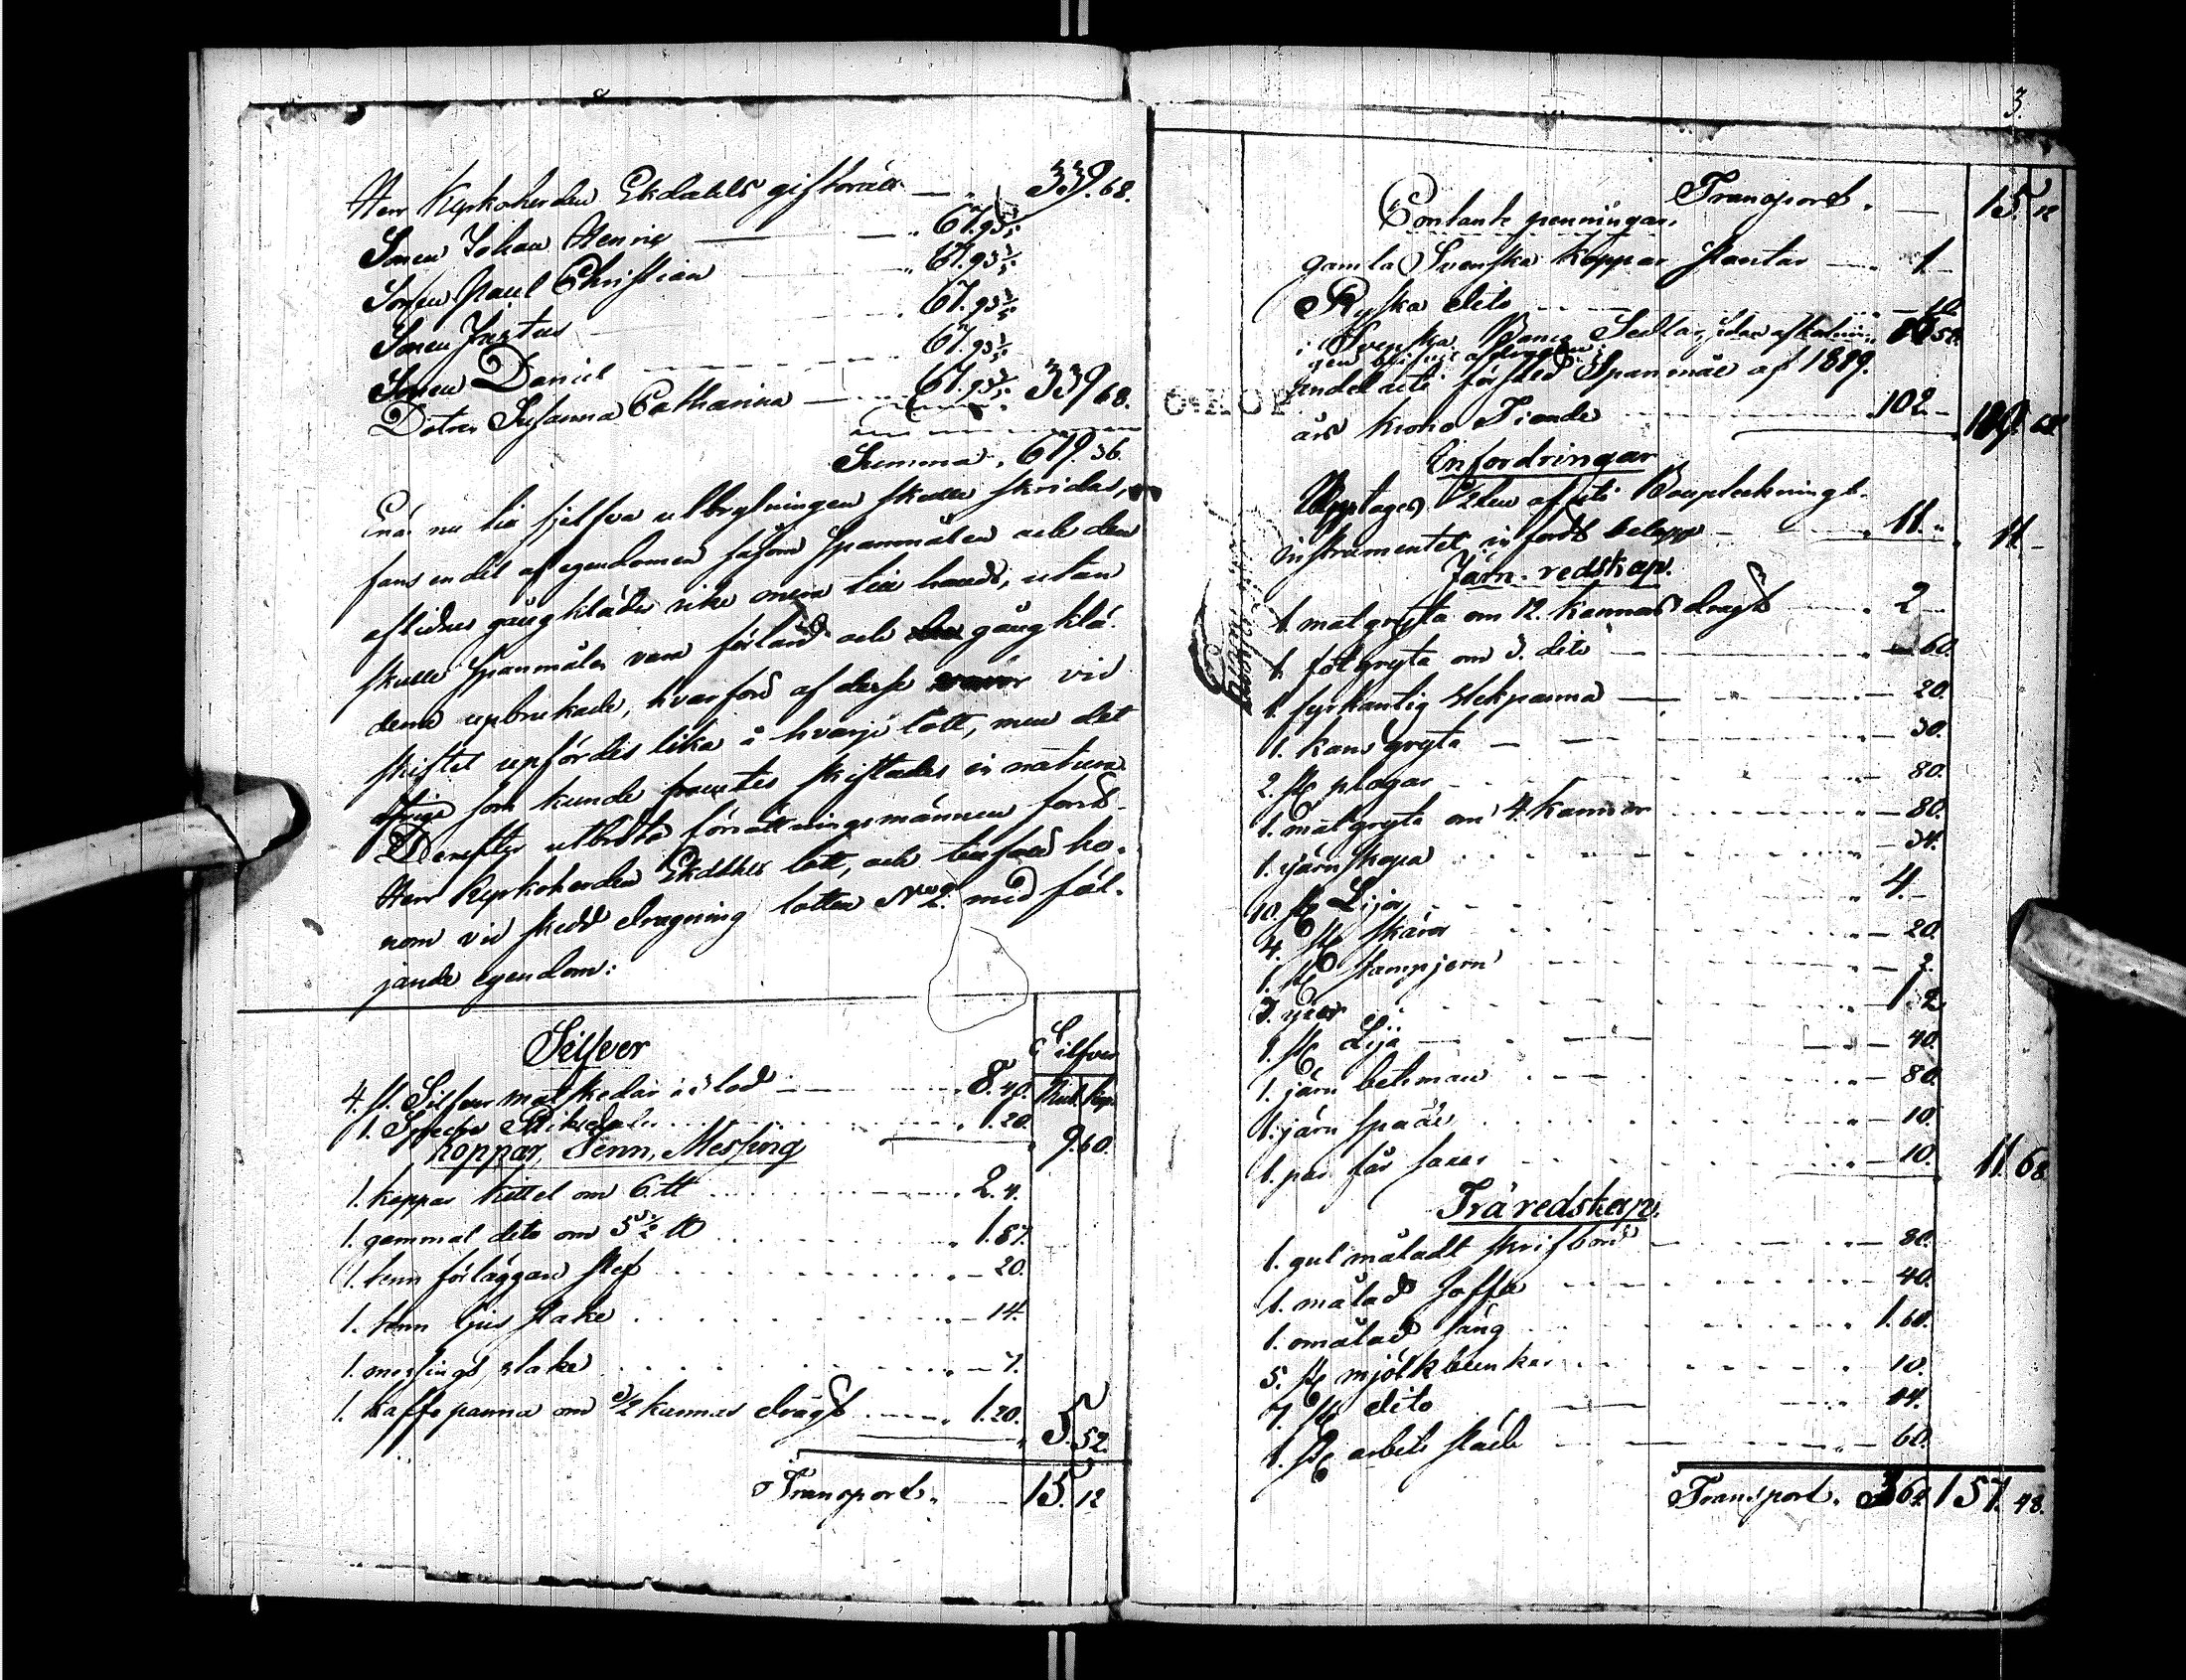 Herr Kyrkoherden Ekdahls giftorätt — 339.68.
Sonen Johan Henric — 67.93 3/5
Sonen Paul Christian — 67.93 3/5
Sonen Justus — 67.93 3/5
Sonen Daniel — 67.93 3/5
Dotren Susanna Catharina — 67.93 3/5 339.68.
Summa. 679.36.
nu till sjelfva utbrytningen skulle skridas,
fans en del af egendomen såsom Spanmålen och den
aflidnes gångkläder icke mera till hands, utan
skulle Spanmålen vara förländ och gångklä-
derne upbrukade, hvarföre af desse vid
skiftet upfördes lika å hvarje lott, men det
öfriga som kunde skiftades in natura.
Derefter utbröto förrättningsmännen först
Herr Kyrkoherden Ekdahls lott, och tillföll ho-
nom vid skedd dragning lotten No 2. med föl-
jande egendom:
Silfver
Silfver
Rub. Kop.
4. st. Silfver matskedar lod 8.40.
1. Specie Riksdaler 1.20.
9.60.
Koppar, Tenn, Messing
1. koppar kittel om 6. ℔ 2.4.
1. gammal dito om 5 1/2 ℔ 1.87.
1. tenn förläggare slef — 20.
1. tenn ljus stake — 14.
1. messings stake — 7.
1. kaffe panna om 1/2 kannas drägt 1.20. 5.52.
Transport. 15.12
3.
Transport. — 15.12
Contante penningar.
gamla Svenska koppar slantar — 1 —
Ryska dito — 10.
i Svenska Banco Sedlar,
andel uti försåld Spanmål af 1819.
års krono Tionde 102.—
Enfordringar
Upptages af uti Bouptecknings-
instrumentet införd belopp — 11. 11 —
Järn-redskap.
1. malgryta om 12. kannas drägt 2 —
1. fotgryta om 3. dito — 60.
1. fyrkantig stekpanna — 20.
1. kans gryta — 30.
2. st. plogar — 80.
1. malgryta om 4. kannor — 80.
1. järn skopa — 34.
10. st. Lijor 4.—
4. st. skäror — 20.
1. st. stampjern
7. yxor
1. st. Lija — 40.
1. järn betsman — 80.
1. järn spade — 10.
1. par får saxar — 10. 11.68
Träredskap.
1. gul måladt skrifbord — 80.
1. målad Soffa — 40.
1. omålad säng 1.60.
5. st. mjölkbunkar 10.
7. st. dito 14.
1. st. arbets släde — 60.
Transport. 3.64 157.48.